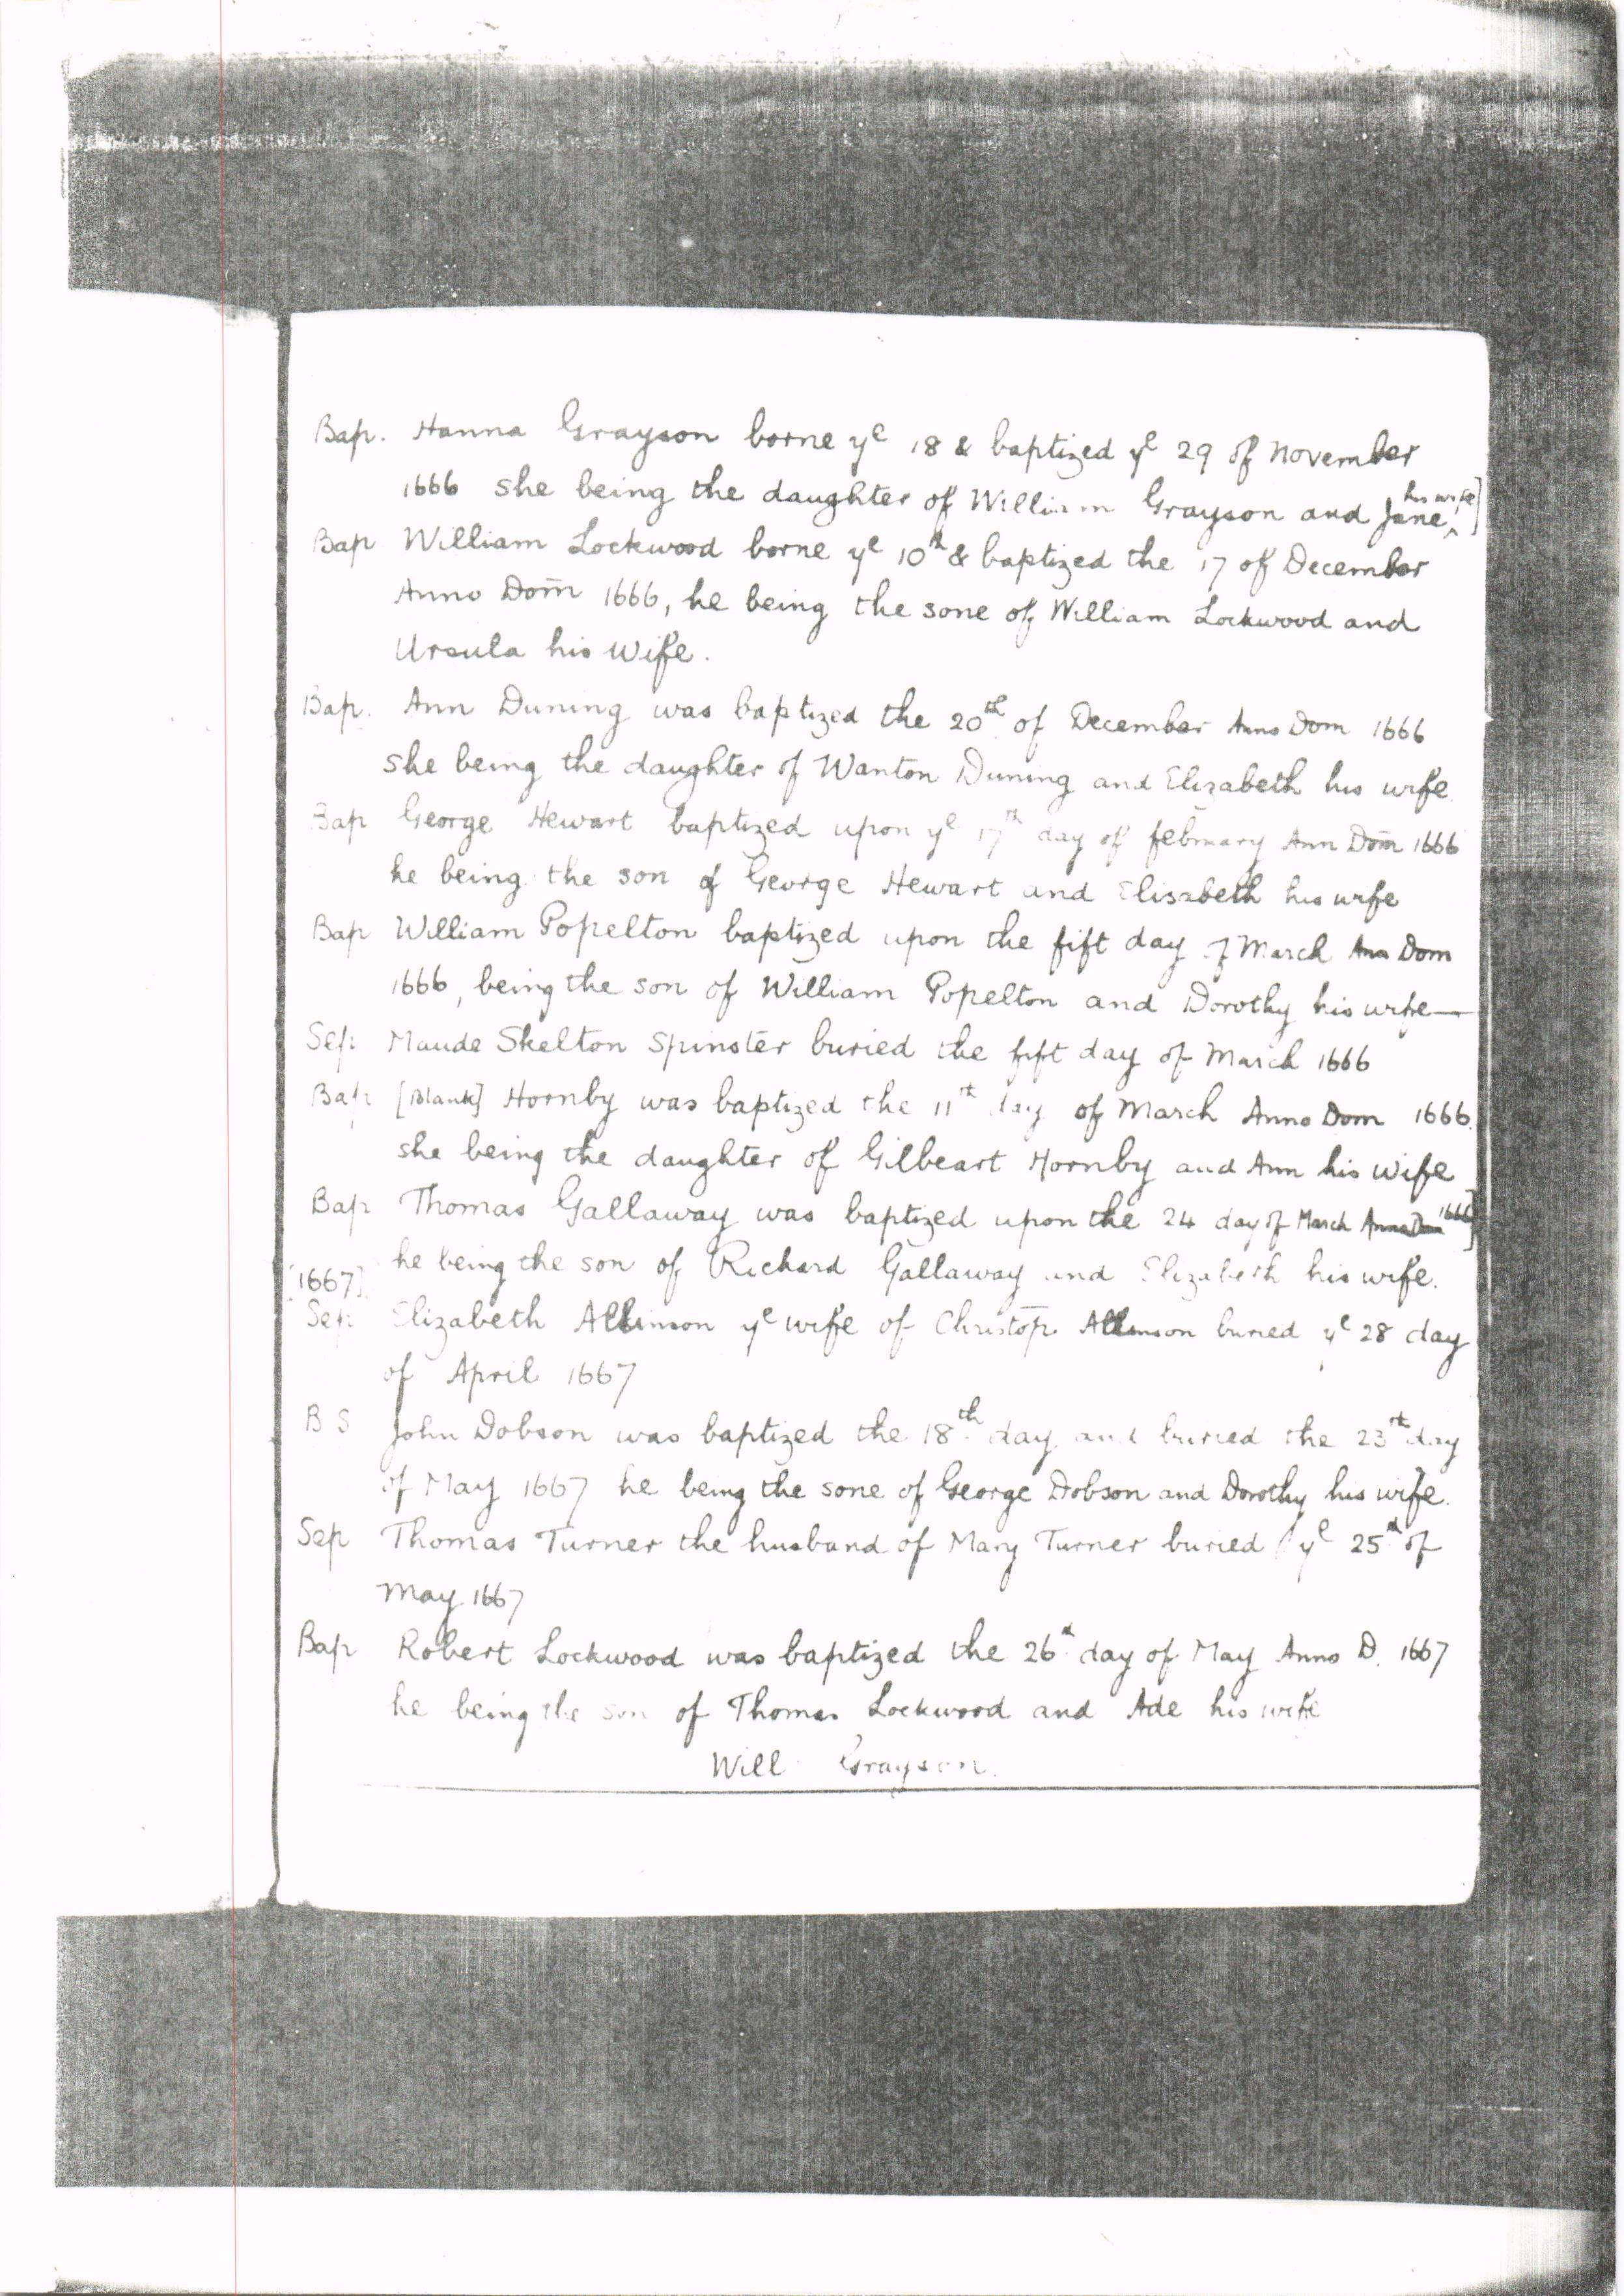 Bap. Hanna Grayson borne yᵉ 18 & baptized yᵉ 29 of November
1666 she being the daughter of William Grayson and Jane ^ his wife]
Bap William Lockwood borne yᵉ 10th & baptized the 17 of December
Anno Dom̄ 1666, he being the sone of William Lockwood and
Ursula his wife.
Bap. Ann Duning was baptized the 20th of December Anno Dom 1666
she being the daughter of Wanton Duning and Elizabeth his wife
Bap George Hewart baptized upon yᵉ 17th day of february Ann Dom̄ 1666
he being the son of George Hewart and Elisabeth his wife
Bap William Popelton baptized upon the fift day of March Ann Dom
1666, being the son of William Popelton and Dorothy his wife—
Sep Maude Skelton Spinster buried the fift day of March 1666
Bap [Blank] Hornby was baptized the 11th day of March Anno Dom 1666.
she being the daughter of Gilbeart Hornby and Ann his wife
Bap Thomas Gallaway was baptized upon the 24 day of March Anno Dom 1666]
he being the son of Richard Gallaway and Elizabeth his wife.
[1667]
Sep Elizabeth Allinson yᵉ wife of Christop̄ Allinson buried yᵉ 28 day
of April 1667
B S John Dobson was baptized the 18th day and buried the 23th day
of May 1667 he being the sone of George Dobson and Dorothy his wife.
Sep Thomas Turner the husband of Mary Turner buried yᵉ 25th of
May 1667
Bap Robert Lockwood was baptized the 26th day of May Anno D. 1667
he being the son of Thomas Lockwood and Ade his wife
Will Grayson.